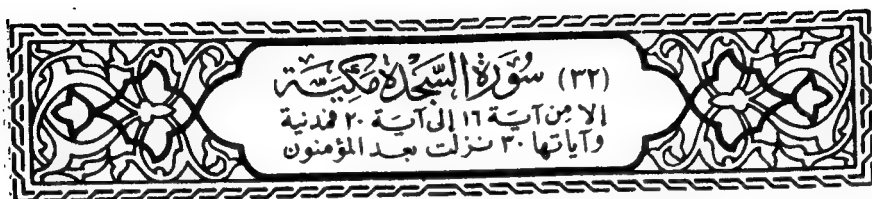 (٣٢) سُورَةُ السَّجْدَةِ مَكِّيَّة
إلا من آية ١٦ إلى آية ٢٠ فمدنية
وآياتها ٣٠ نزلت بعد المؤمنون